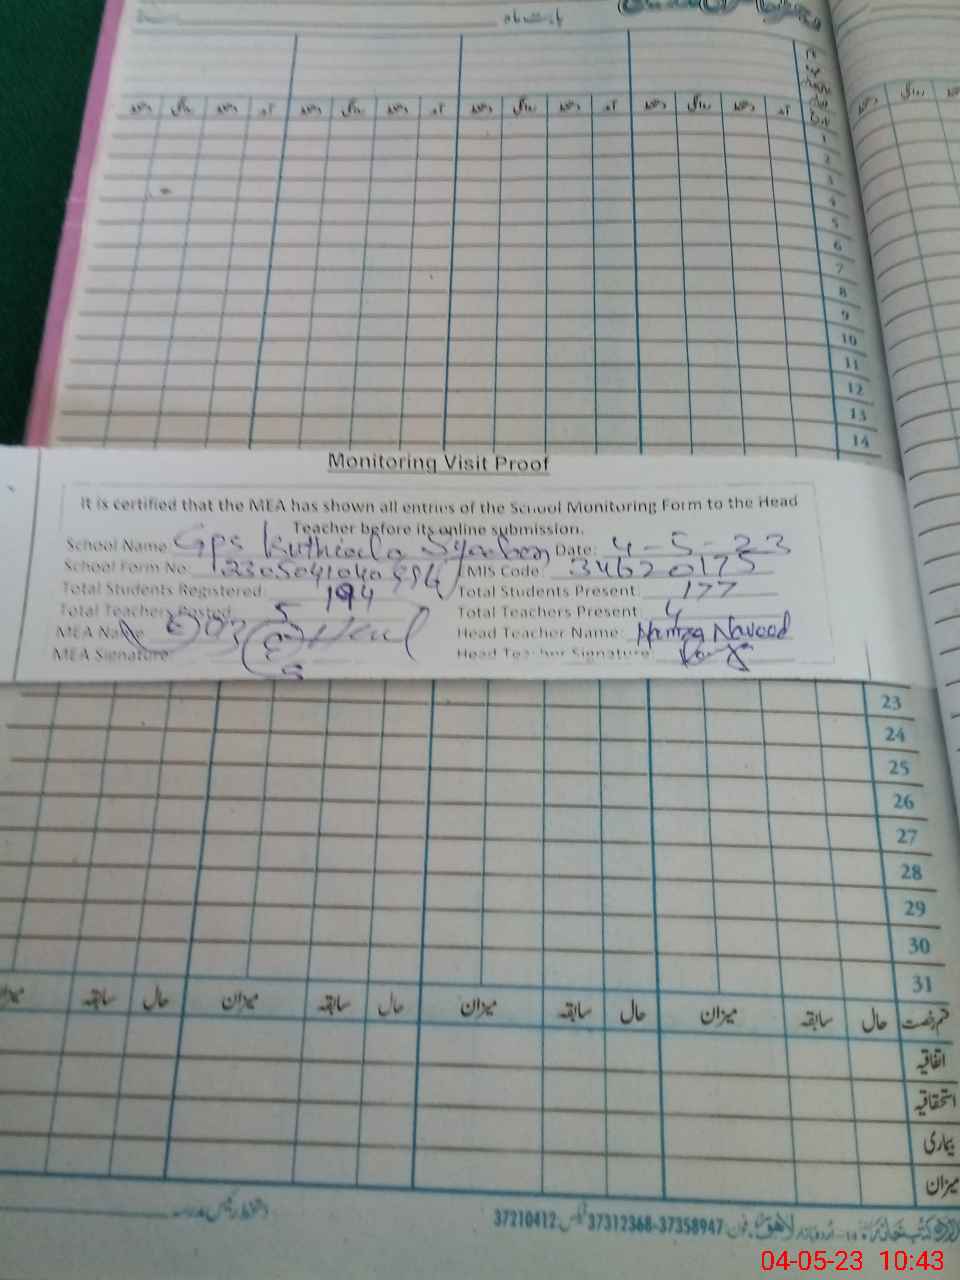 بابت ماہ
آمد دستخط روانگی دستخط آمد دستخط روانگی دستخط آمد دستخط روانگی دستخط آمد دستخط روانگی دستخط
روانگی
1
2
3
4
5
6
7
8
9
10
11
12
13
14
Monitoring Visit Proof
It is certified that the MEA has shown all entries of the School Monitoring Form to the Head
Teacher before its online submission.
School Name: GPS Kuthiala Date: 4-5-23
School Form No: EMIS Code: 34620175
Total Students Registered: 194 Total Students Present: 177
Total Teachers Posted: 5 Total Teachers Present: 4
MEA Name Head Teacher Name: Hamza Naveed
MEA Signature: Head Teacher Signature:
23
24
25
26
27
28
29
30
31
قسم رخصت حال سابقہ میزان حال سابقہ میزان حال سابقہ میزان حال سابقہ میزان
اتفاقیہ
استحقاقیہ
بیماری
میزان
دستخط رئیس مدرسہ
کتب خانہ اردو بازار لاہور فون: 37312368-37358947 فیکس: 37210412
04-05-23 10:43